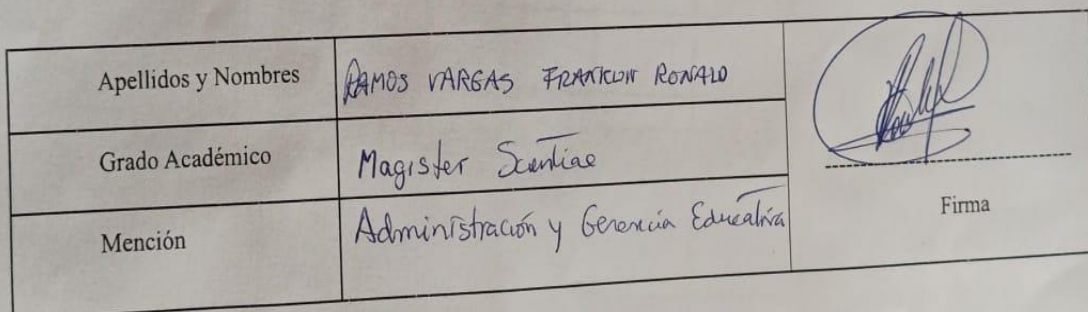 Apellidos y Nombres RAMOS VARGAS FRANKLIN RONALD
Grado Académico Magister Scientiae
Mención Administración y Gerencia Educativa
Firma